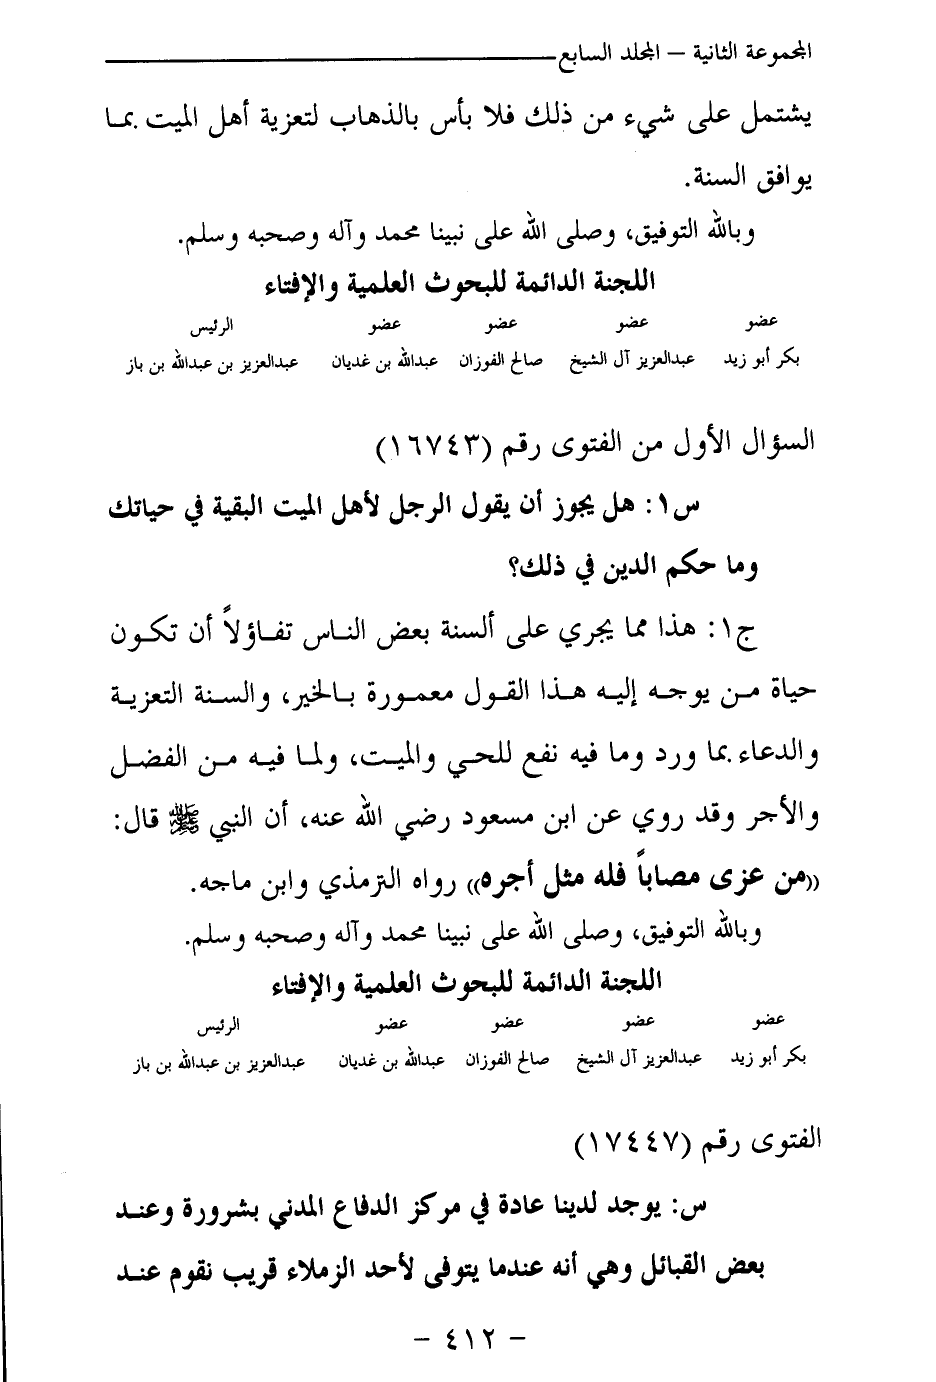 المجموعة الثانية – المجلد السابع
يشتمل على شيء من ذلك فلا بأس بالذهاب لتعزية أهل الميت بما
يوافق السنة.
وبالله التوفيق، وصلى الله على نبينا محمد وآله وصحبه وسلم.
اللجنة الدائمة للبحوث العلمية والإفتاء
عضو عضو عضو عضو الرئيس
بكر أبو زيد عبدالعزيز آل الشيخ صالح الفوزان عبدالله بن غديان عبدالعزيز بن عبدالله بن باز
السؤال الأول من الفتوى رقم (١٦٧٤٣)
س١: هل يجوز أن يقول الرجل لأهل الميت البقية في حياتك
وما حكم الدين في ذلك؟
ج١: هذا مما يجري على ألسنة بعض الناس تفاؤلاً أن تكون
حياة من يوجه إليه هذا القول معمورة بالخير، والسنة التعزية
والدعاء بما ورد وما فيه نفع للحي والميت، ولما فيه من الفضل
والأجر وقد روي عن ابن مسعود رضي الله عنه، أن النبي ﷺ قال:
((من عزى مصاباً فله مثل أجره)) رواه الترمذي وابن ماجه.
وبالله التوفيق، وصلى الله على نبينا محمد وآله وصحبه وسلم.
اللجنة الدائمة للبحوث العلمية والإفتاء
عضو عضو عضو عضو الرئيس
بكر أبو زيد عبدالعزيز آل الشيخ صالح الفوزان عبدالله بن غديان عبدالعزيز بن عبدالله بن باز
الفتوى رقم (١٧٤٤٧)
س: يوجد لدينا عادة في مركز الدفاع المدني بشرورة وعند
بعض القبائل وهي أنه عندما يتوفى لأحد الزملاء قريب نقوم عند
– ٤١٢ –